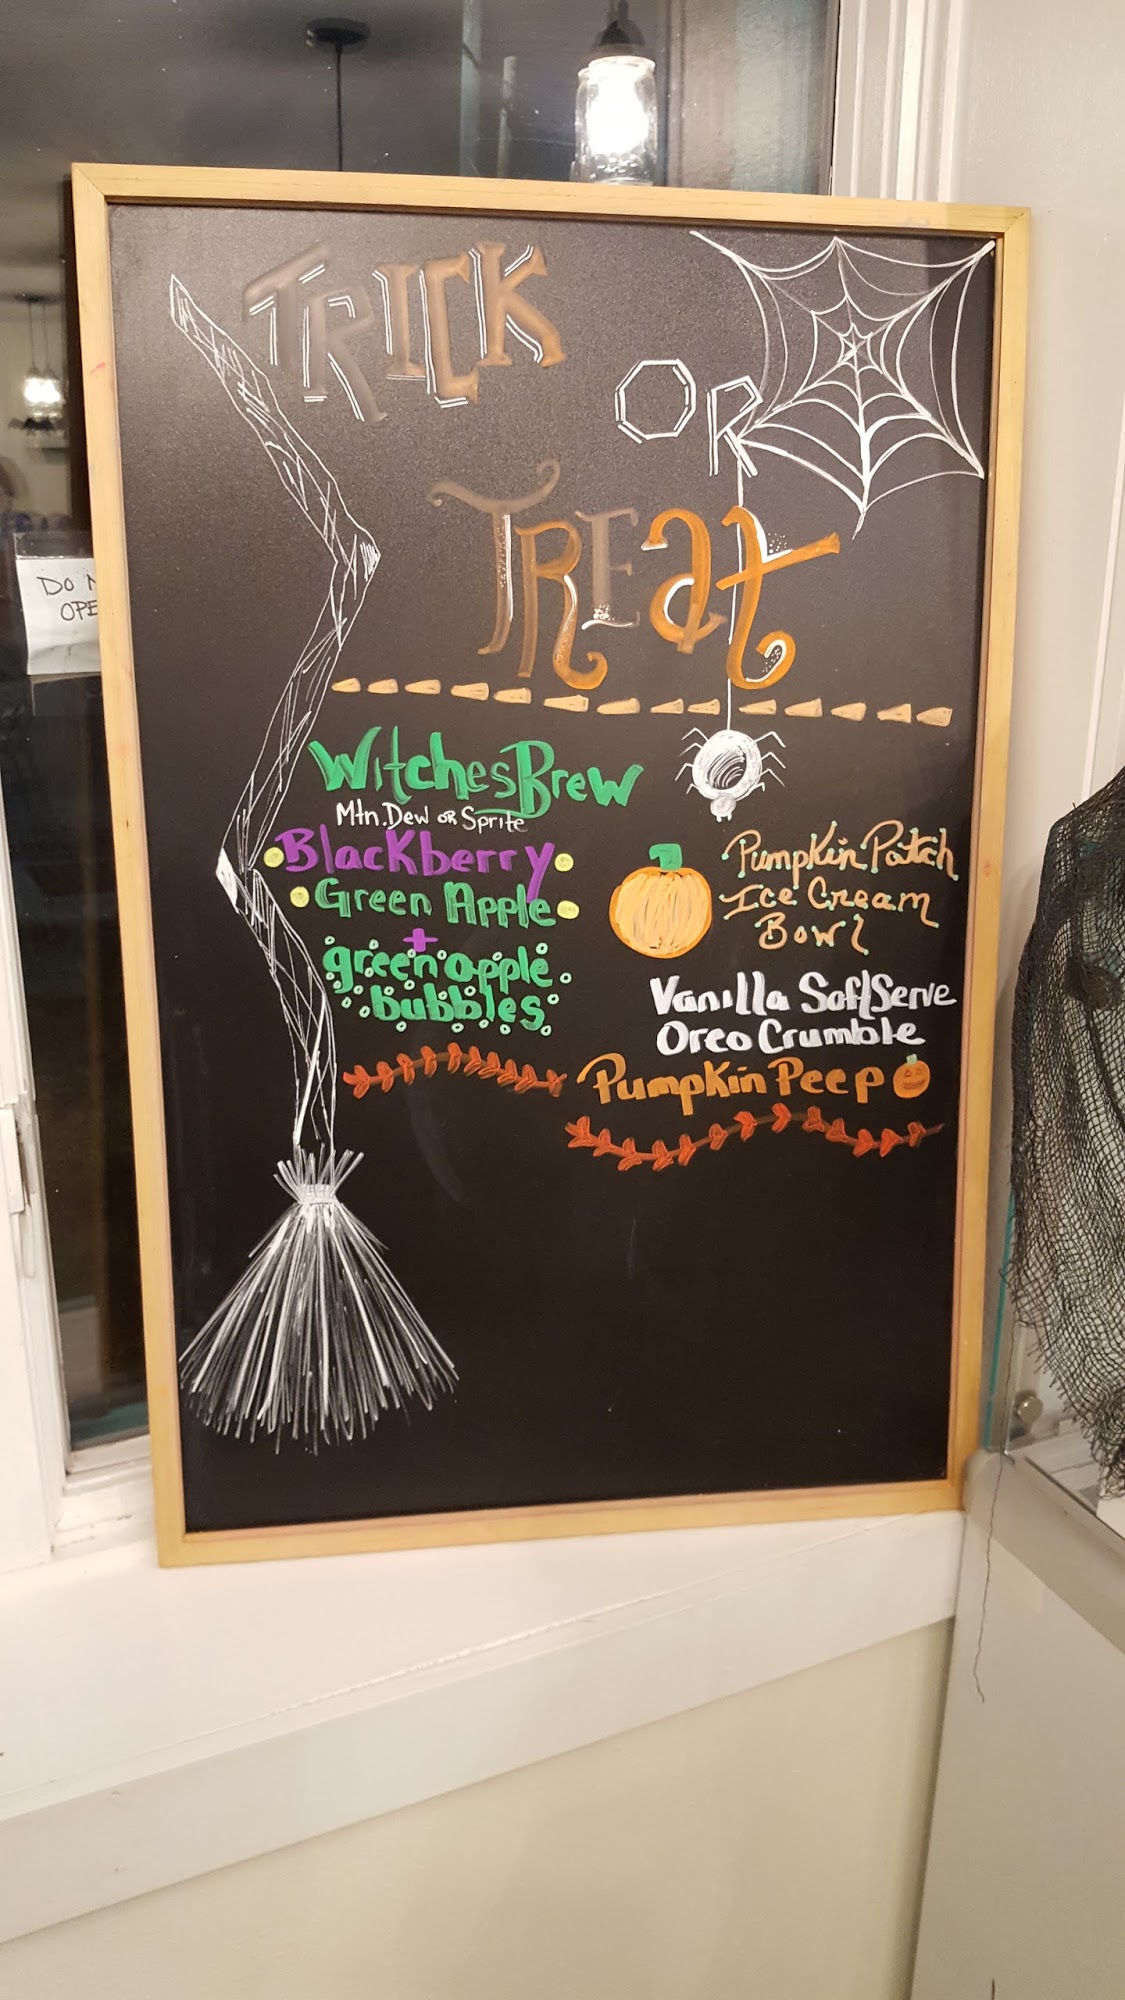 TRICK
OR
TREat
WitchesBrew
Mtn.Dew OR Sprite
Blackberry
Green Apple
+
green apple
bubbles
Pumpkin Patch
Ice Cream
Bowl
Vanilla SoftServe
Oreo Crumble
Pumpkin Peep
DO